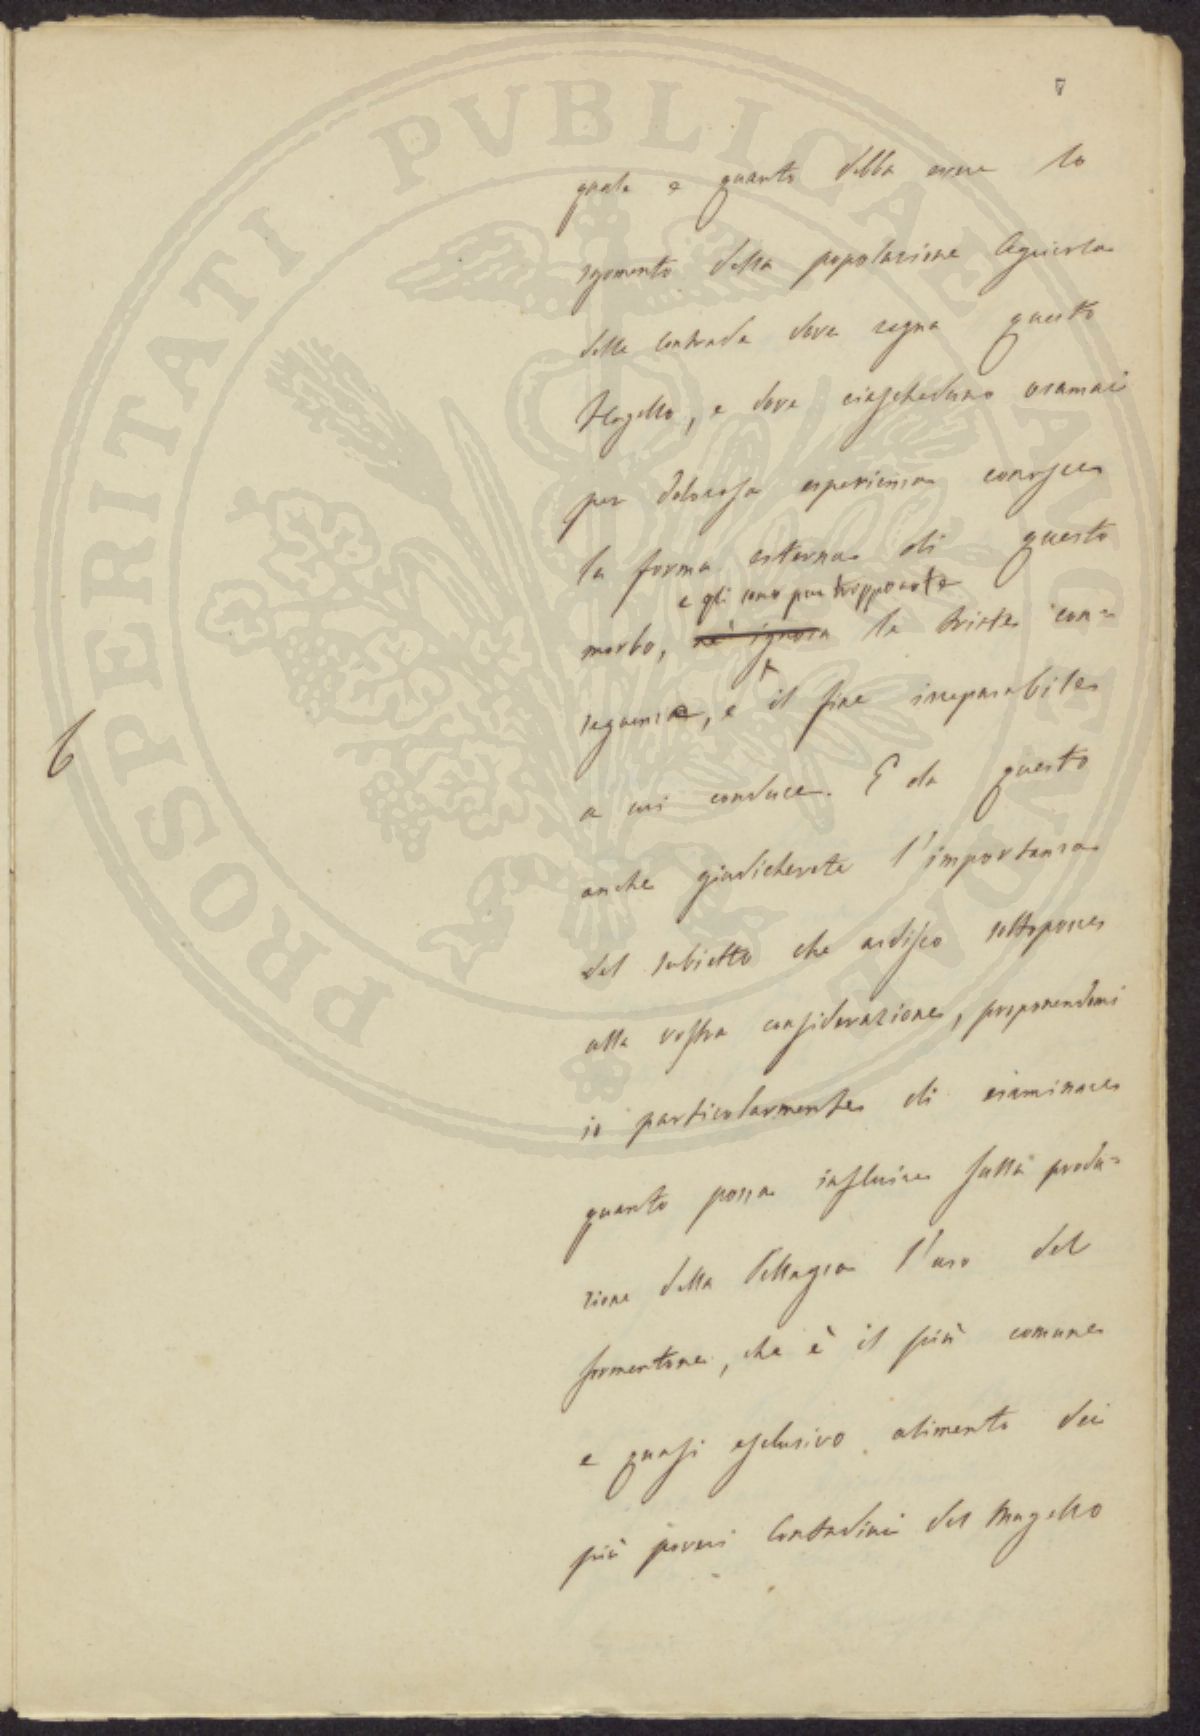 quale e quanto debba essere lo
sgomento della popolazione Agricola
delle Contrade dove regna questo
flagello, e dove ciascheduno oramai
per dolorosa esperienza conosce
la forma esterna di questo
e gli sono pur troppo note
morbo, nè ignora le triste con=
seguenze, e il fine inseparabile
a cui conduce. E da questo
anche giudicherete l'importanza
del subietto che ardisco sottoporre
alla vostra considerazione, proponendomi
io particolarmente di esaminare
quanto possa influire sulla produ=
zione della Pellagra l'uso del
formentone, che è il più comune
e quasi esclusivo alimento dei
più poveri Contadini del Mugello
6
PROSPERITATI PVBLICAE AVGENDAE